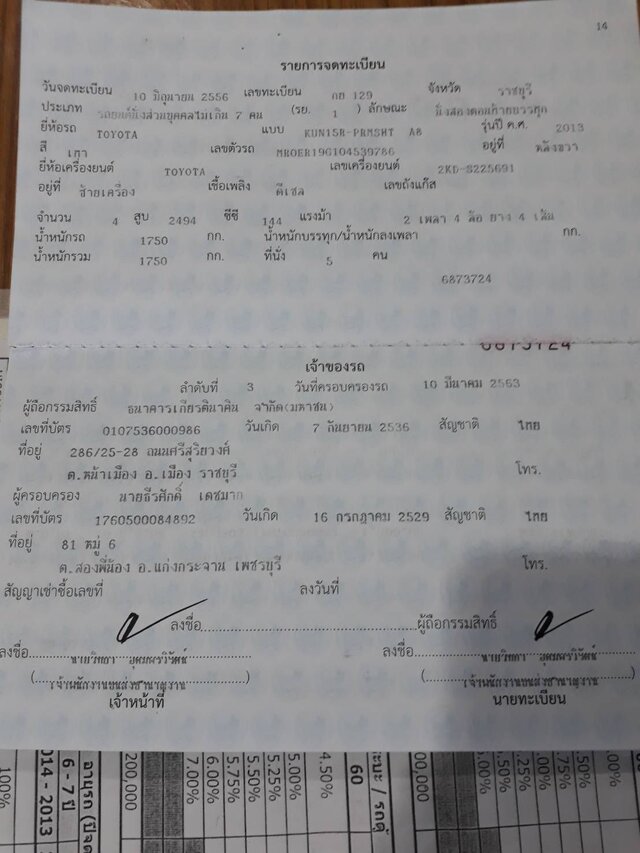 14
รายการจดทะเบียน
วันจดทะเบียน 10 มิถุนายน 2556 เลขทะเบียน กย 129 จังหวัด ราชบุรี
ประเภท รถยนต์นั่งส่วนบุคคลไม่เกิน 7 คน (รย. 1 ) ลักษณะ นั่งสองตอนท้ายบรรทุก
ยี่ห้อรถ TOYOTA แบบ KUN15R-PRMSHT A8 รุ่นปี ค.ศ. 2013
สี เทา เลขตัวรถ MROER19G104539786 อยู่ที่ หลังขวา
ยี่ห้อเครื่องยนต์ TOYOTA เลขเครื่องยนต์ 2KD-S225691
อยู่ที่ ซ้ายเครื่อง เชื้อเพลิง ดีเซล เลขถังแก๊ส
จำนวน 4 สูบ 2494 ซีซี 144 แรงม้า 2 เพลา 4 ล้อ ยาง 4 เส้น
น้ำหนักรถ 1750 กก. น้ำหนักบรรทุก/น้ำหนักลงเพลา กก.
น้ำหนักรวม 1750 กก. ที่นั่ง 5 คน
6873724
6873724
เจ้าของรถ
ลำดับที่ 3 วันที่ครอบครองรถ 10 มีนาคม 2563
ผู้ถือกรรมสิทธิ์ ธนาคารเกียรตินาคิน จำกัด(มหาชน)
เลขที่บัตร 0107536000986 วันเกิด 7 กันยายน 2536 สัญชาติ ไทย
ที่อยู่ 286/25-28 ถนนศรีสุริยวงศ์
ต.หน้าเมือง อ.เมือง ราชบุรี โทร.
ผู้ครอบครอง นายธีรศักดิ์ เดชมาก
เลขที่บัตร 1760500084892 วันเกิด 16 กรกฎาคม 2529 สัญชาติ ไทย
ที่อยู่ 81 หมู่ 6
ต.สองพี่น้อง อ.แก่งกระจาน เพชรบุรี โทร.
สัญญาเช่าซื้อเลขที่ ลงวันที่
ลงชื่อ ผู้ถือกรรมสิทธิ์
ลงชื่อ นายวิทยา ลงชื่อ นายวิทยา
(เจ้าพนักงานขนส่งชำนาญงาน) (เจ้าพนักงานขนส่งชำนาญงาน)
เจ้าหน้าที่ นายทะเบียน
200,000
7.00%
6.00%
5.75%
5.50%
5.25%
5.00%
4.50%
60
6 - 7 ปี
2014 - 2013
100%